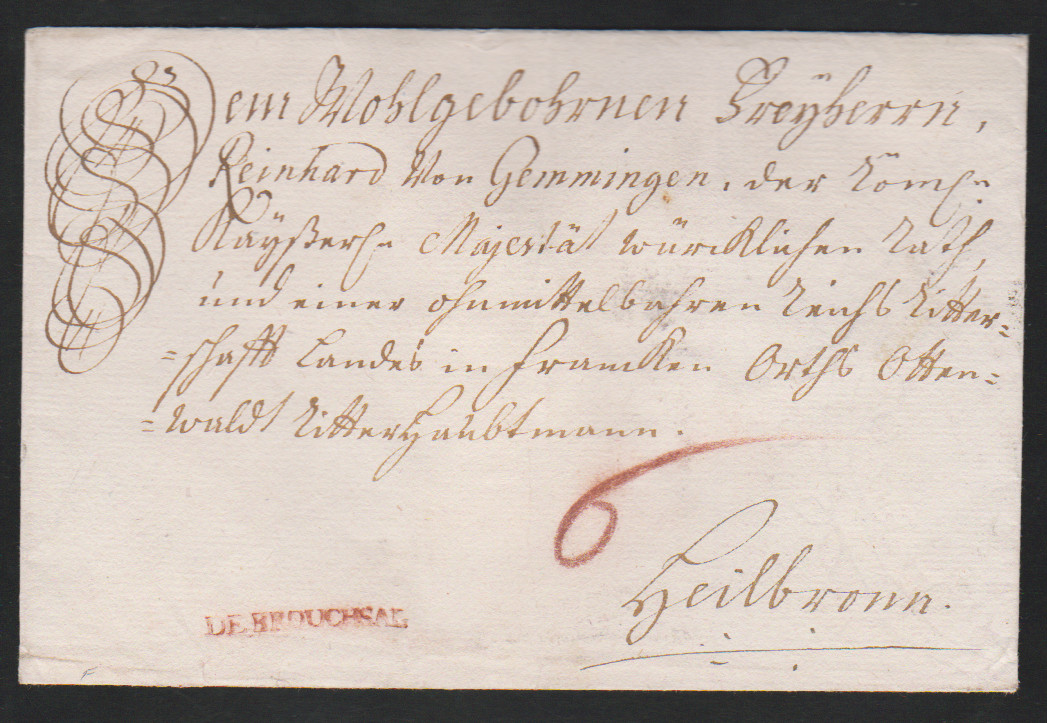 Dem Wohlgebohrnen Freyherrn,
Reinhard Von Gemmingen, der Römsch
Kayßerl. Majestät würcklichen Rath,
und einer ohnmittelbahren Reichs Ritter=
=schafft Landes in Francken Orths Otten=
=waldt Ritter Haubtmann.
6
Heilbronn.
DE BROUCHSAL